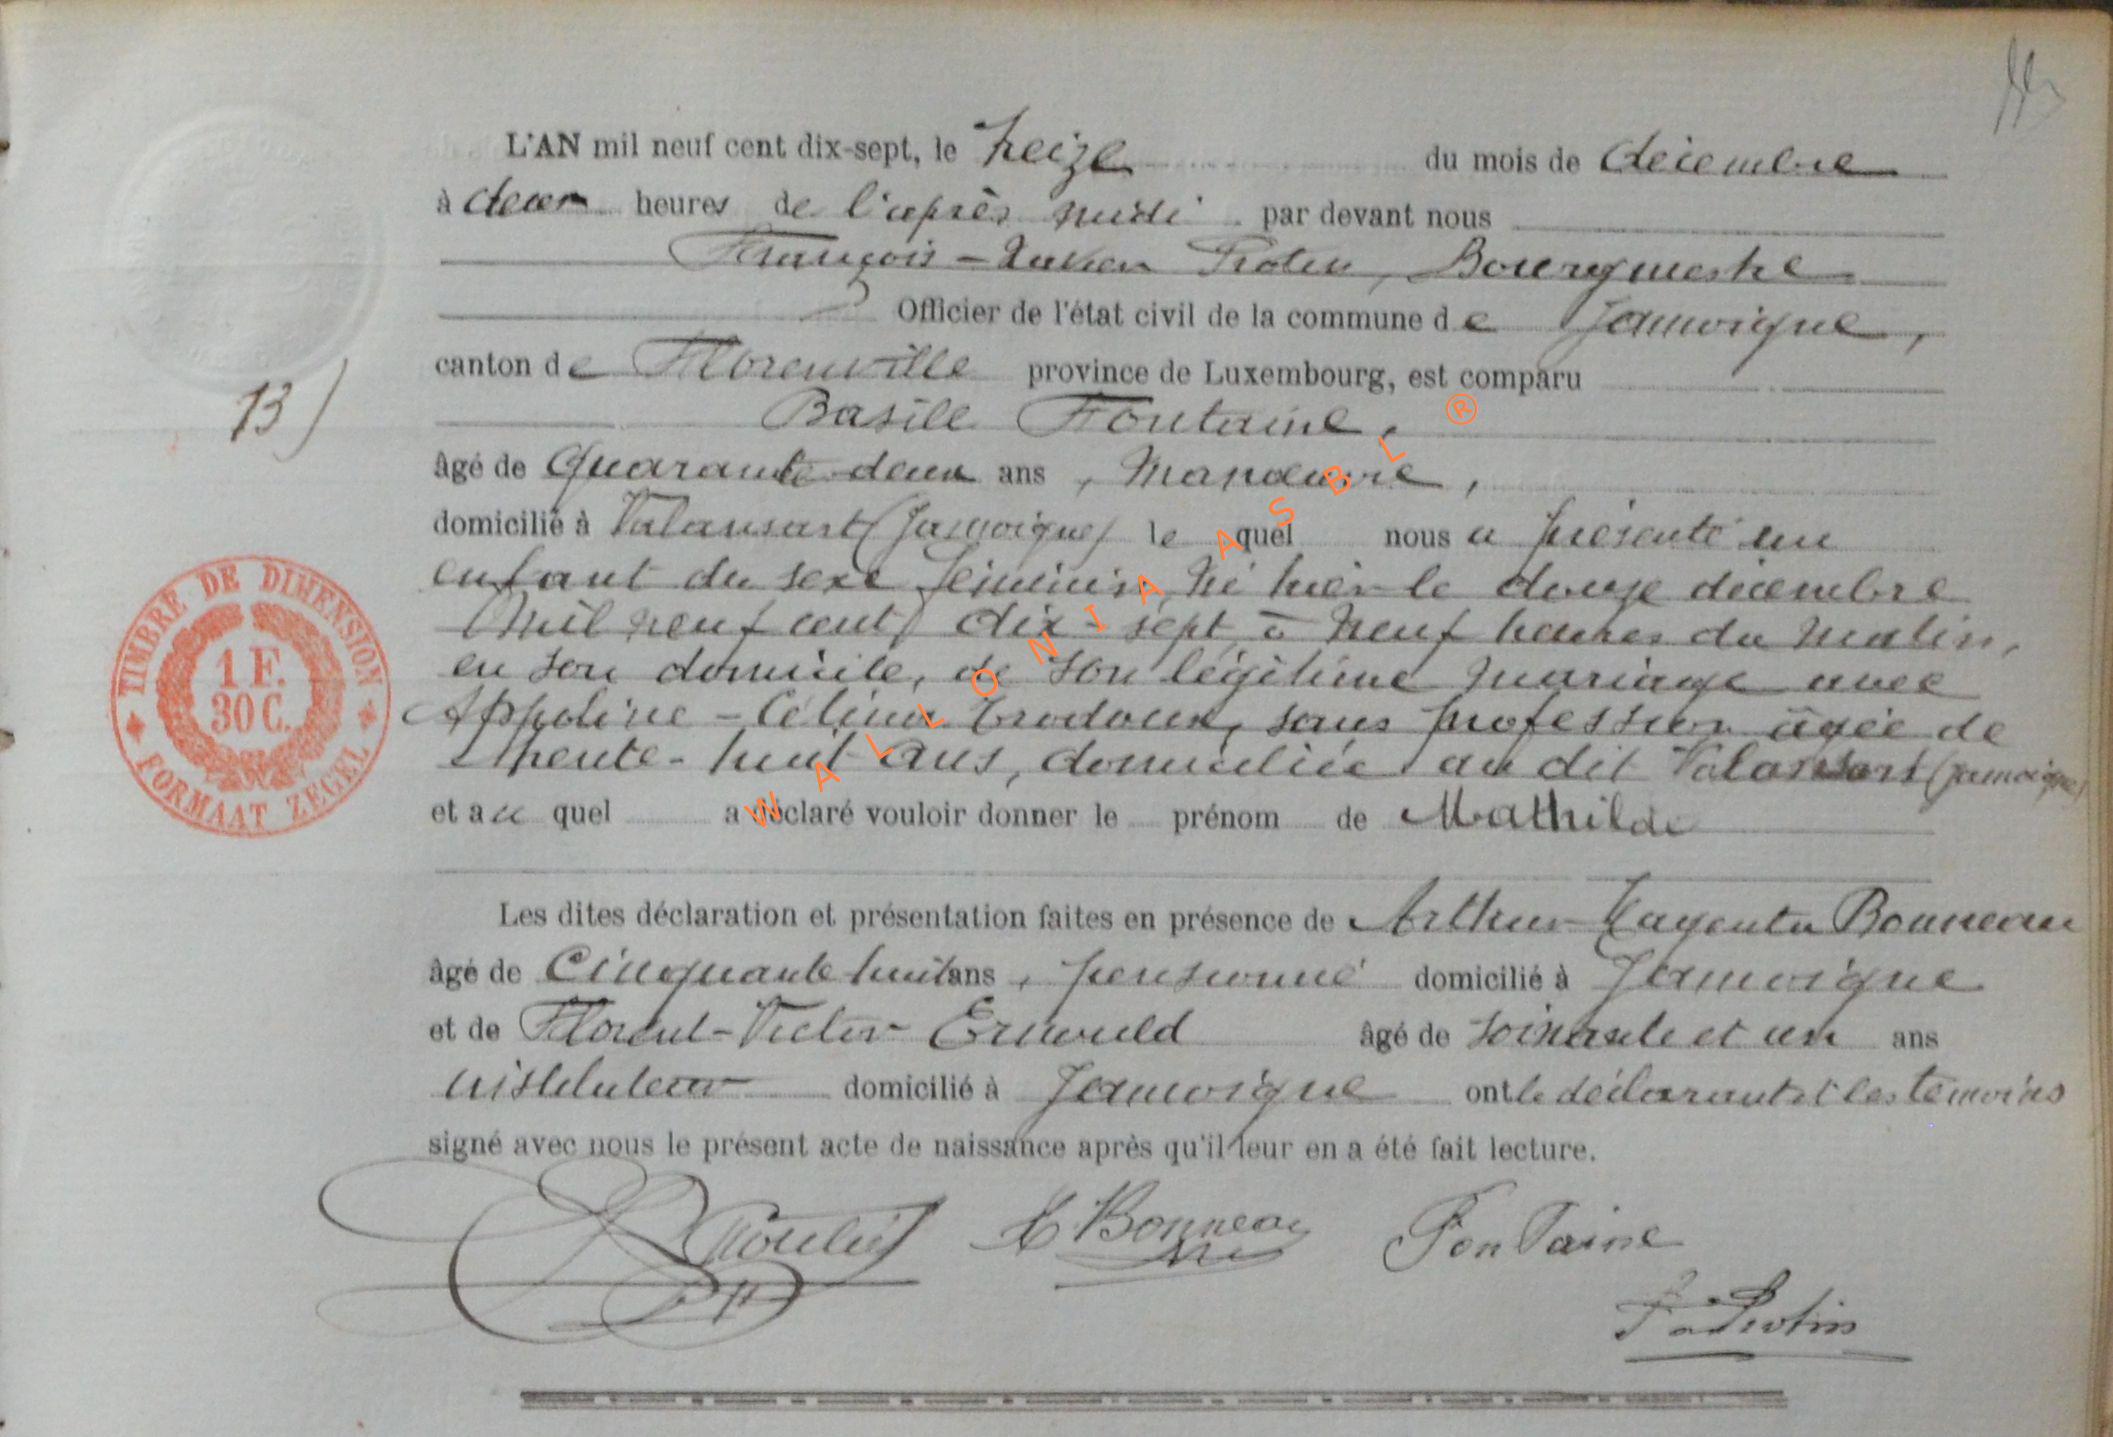 L'AN mil neuf cent dix-sept, le treize du mois de décembre
à deux heures de l'après midi par devant nous
François - Protin, Bourgmestre
Officier de l'état civil de la commune de Jamoigne,
canton de Florenville province de Luxembourg, est comparu
Basile Fontaine,
13)
âgé de quarante-deux ans, Manœuvre,
domicilié à Valansart (Jamoigne) lequel nous a présenté un
enfant du sexe féminin, né hier le douze décembre
mil neuf cent dix-sept, à neuf heures du matin,
en son domicile, de son légitime mariage avec
Appoline-Célina sans profession âgée de
trente-huit ans, domiciliée au dit Valansart (Jamoigne)
et auquel a déclaré vouloir donner le prénom de Mathilde
TIMBRE DE DIMENSION
1 F.
30 C.
FORMAAT ZEGEL
Les dites déclaration et présentation faites en présence de Arthur Bonneau
âgé de Cinquante huit ans, pensionné domicilié à Jamoigne
et de Florent-Victor âgé de soixante et un ans
instituteur domicilié à Jamoigne ont le déclarant et les témoins
signé avec nous le présent acte de naissance après qu'il leur en a été fait lecture.
Bonneau Fontaine
Protin
WALLONIA ASBL ®